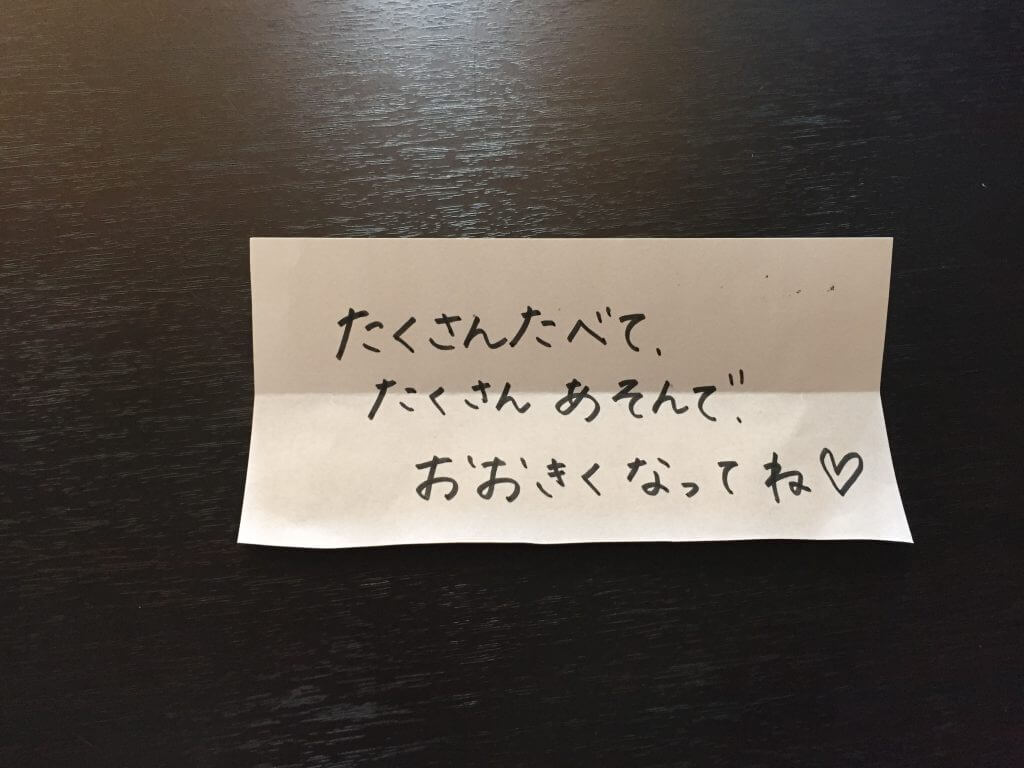 たくさんたべて、
たくさん あそんで、
おおきく なってね♡